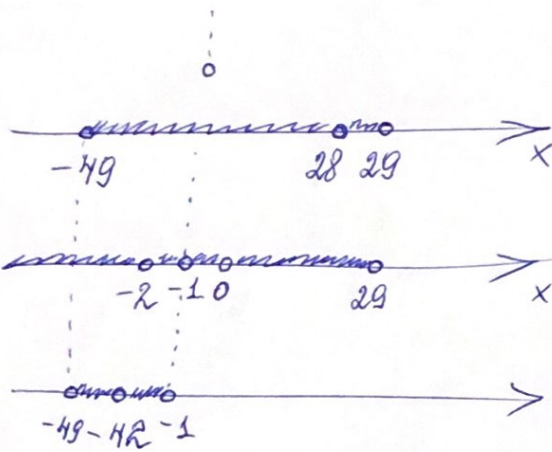 -49 28 29 x
-2 -1 0 29 x
-49 -42 -1